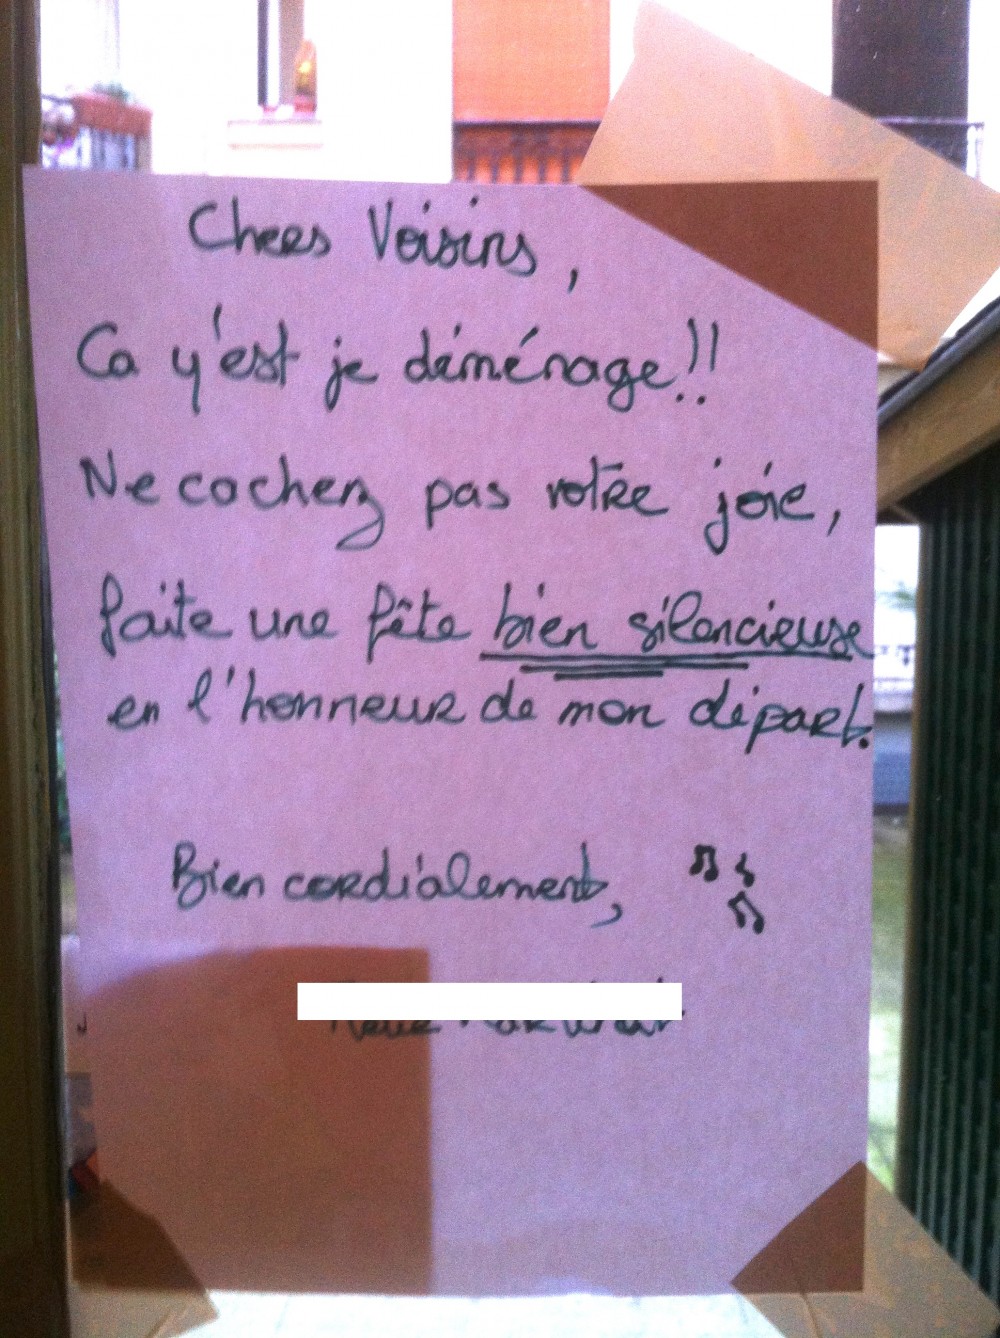 Chers Voisins,
Ca y'est je déménage!!
Ne cachez pas votre joie,
faite une fête bien silencieuse
en l'honneur de mon départ.
Bien cordialement,